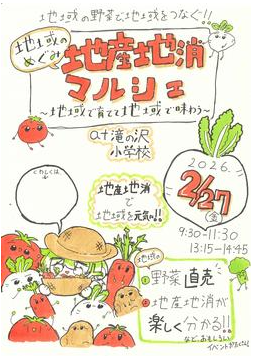 地域の野菜で地域をつなぐ!!
地域の
めぐみ
地産地消
マルシェ
〜地域で育てて地域で味わう〜
at滝の沢
小学校
2026.
2/27
(金)
9:30-11:30
13:15-14:45
くわしくは
地産地消
で
地域を元気に!!
地域の
①野菜直売
②地産地消が
楽しく分かる!!
などおもしろい
イベントがたくさん